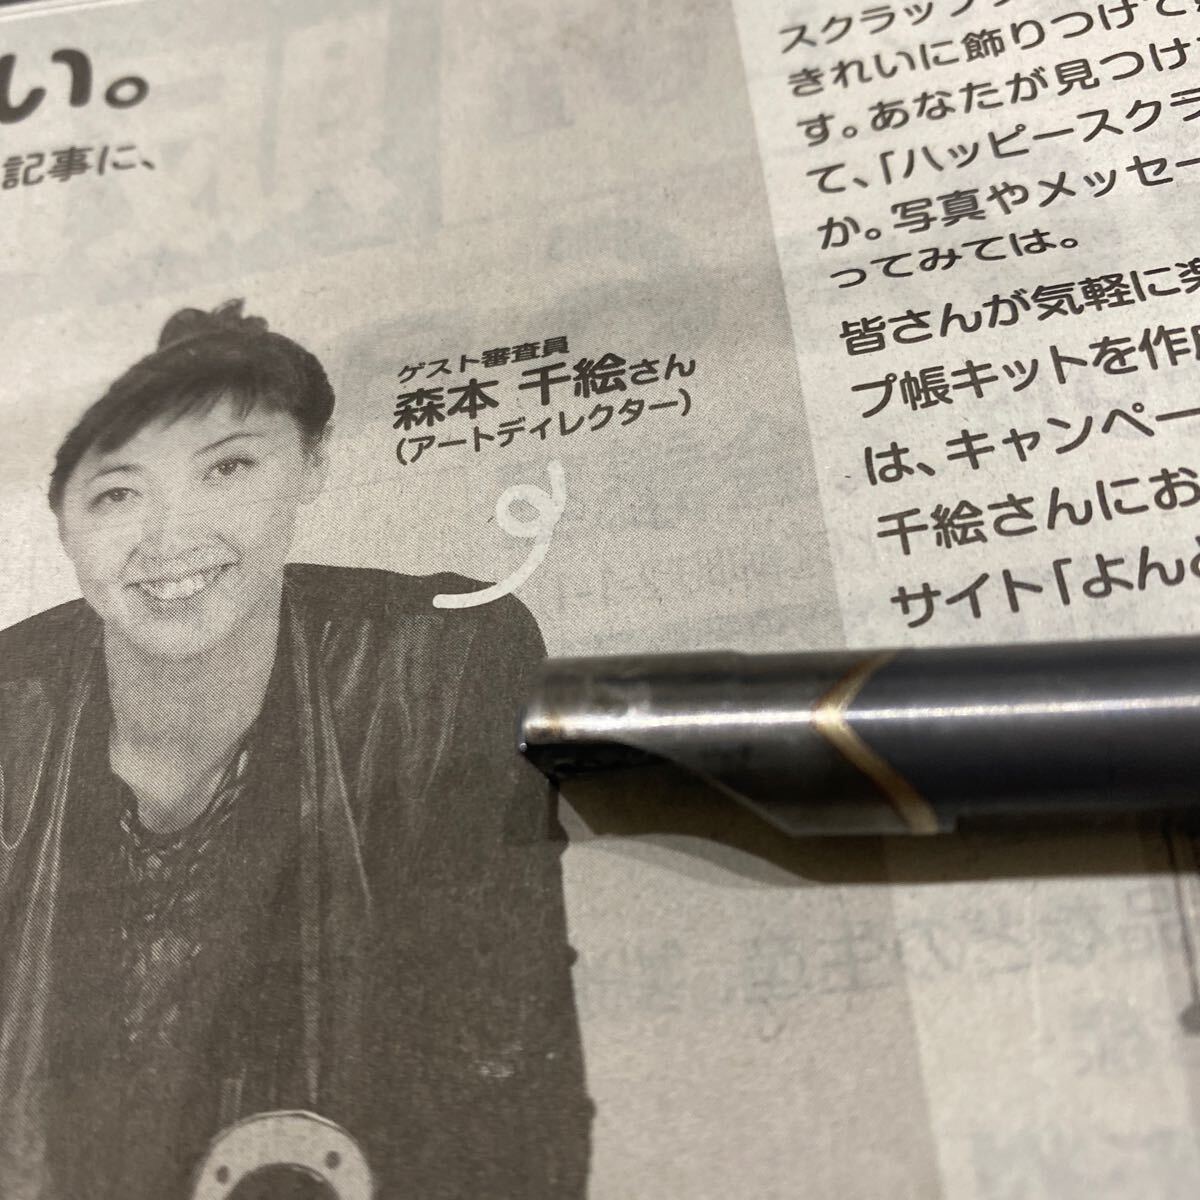 い。
記事に、
ゲスト審査員
森本 千絵さん
（アートディレクター）
スクラップ
きれいに飾りつけて
す。あなたが見つけ
て、「ハッピースクラ
か。写真やメッセー
ってみては。
皆さんが気軽に楽
プ帳キットを作成
は、キャンペー
千絵さんにお
サイト「よんと